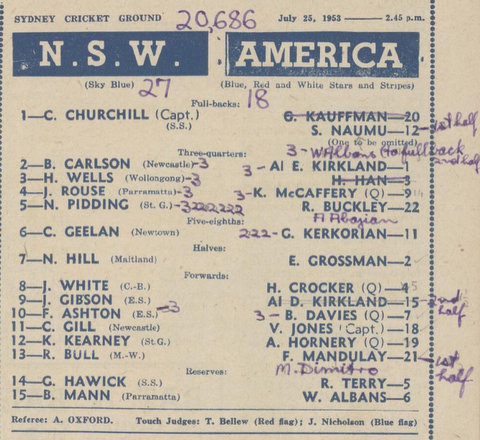 SYDNEY CRICKET GROUND 20,686 July 25, 1953 — 2.45 p.m.
N.S.W. AMERICA
(Sky Blue) 27 (Blue, Red and White Stars and Stripes)
Full-backs: 18
1—C. CHURCHILL (Capt.) G. KAUFFMAN—20
(S.S.) S. NAUMU—12 1st half
(One to be omitted)
Three-quarters: 3- W Albans (to fullback 2nd half
2—B. CARLSON (Newcastle)-3 3- Al E. KIRKLAND—1
3—H. WELLS (Wollongong)-3 H. HAN—3
4—J. ROUSE (Parramatta)-3 3- K. McCAFFERY (Q)—9
5—N. PIDDING (St. G.)-3222222 R. BUCKLEY—22
Five-eighths: A Abajian
6—C. GEELAN (Newtown) 222- G. KERKORIAN—11
Halves:
7—N. HILL (Maitland) E. GROSSMAN—2
Forwards:
8—J. WHITE (C.-B.) H. CROCKER (Q)—4
9—J. GIBSON (E.S.) Al D. KIRKLAND—15 2nd half
10—F. ASHTON (E.S.)-3 3- B. DAVIES (Q)—7
11—C. GILL (Newcastle) V. JONES (Capt.)—18
12—K. KEARNEY (St.G.) A. HORNERY (Q)—19
13—R. BULL (M.-W.) F. MANDULAY—21 1st half
Reserves: M. Dimitro
14—G. HAWICK (S.S.) R. TERRY—5
15—B. MANN (Parramatta) W. ALBANS—6
Referee: A. OXFORD. Touch Judges: T. Bellew (Red flag); J. Nicholson (Blue flag)